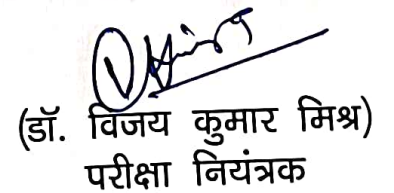 (डॉ. विजय कुमार मिश्र)
परीक्षा नियंत्रक